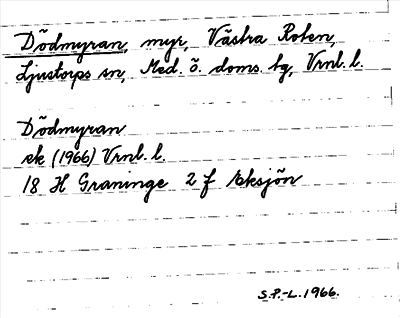 Dödmyran, myr, Västra Roten,
Ljustorps sn, Med. ö. doms. tg, Vrnl. l.
Dödmyran
ek (1966) Vrnl. l.
18 H Graninge 2 f Eksjön
S.P.-L. 1966.